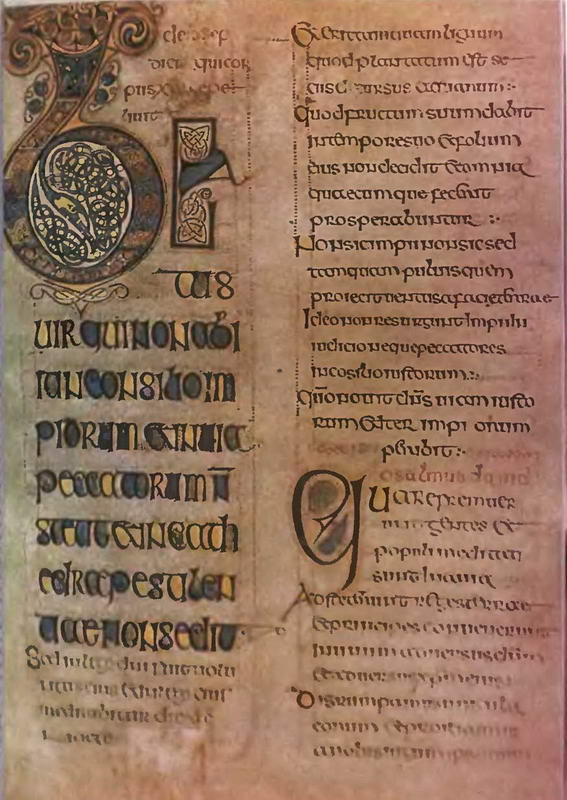 de ioseph
dicit qui cor
pus xpi sepe
liuit
BE
atus
UIR QUI NON ABI
IT IN CONSILIO IM
PIORUM ET IN UIA
PECCATORUM N
STETIT ET IN CATH
EDRA PESTILEN
TIAE NON SEDIT
Sed in lege dni fuit uolu
tas eius et in lege eius
meditabitur die ac
nocte
Et erit tamquam lignum
quod plantatum est se
cus decursus aquarum :
Quod fructum suum dabit
in tempore suo et folium
eius non decidit et omnia
quaecumque fecerit
prosperabuntur :
Non sic impii non sic sed
tamquam puluis quem
proicit uentus a facie terrae
Ideo non resurgunt impii in
iudicio neque peccatores
in cosilio iustorum :
Qnm nouit dns uiam iusto
rum et iter impiorum
peribit :
psalmus dauid
Quare fremuer
unt gentes et
populi meditati
sunt inania
Adsteterunt reges terrae
et principes conuenerunt
in unum aduersus dnm
et aduersus xpm eius
Disrumpamus uincula
eorum et proiciamus
a nobis iugum ipsorum